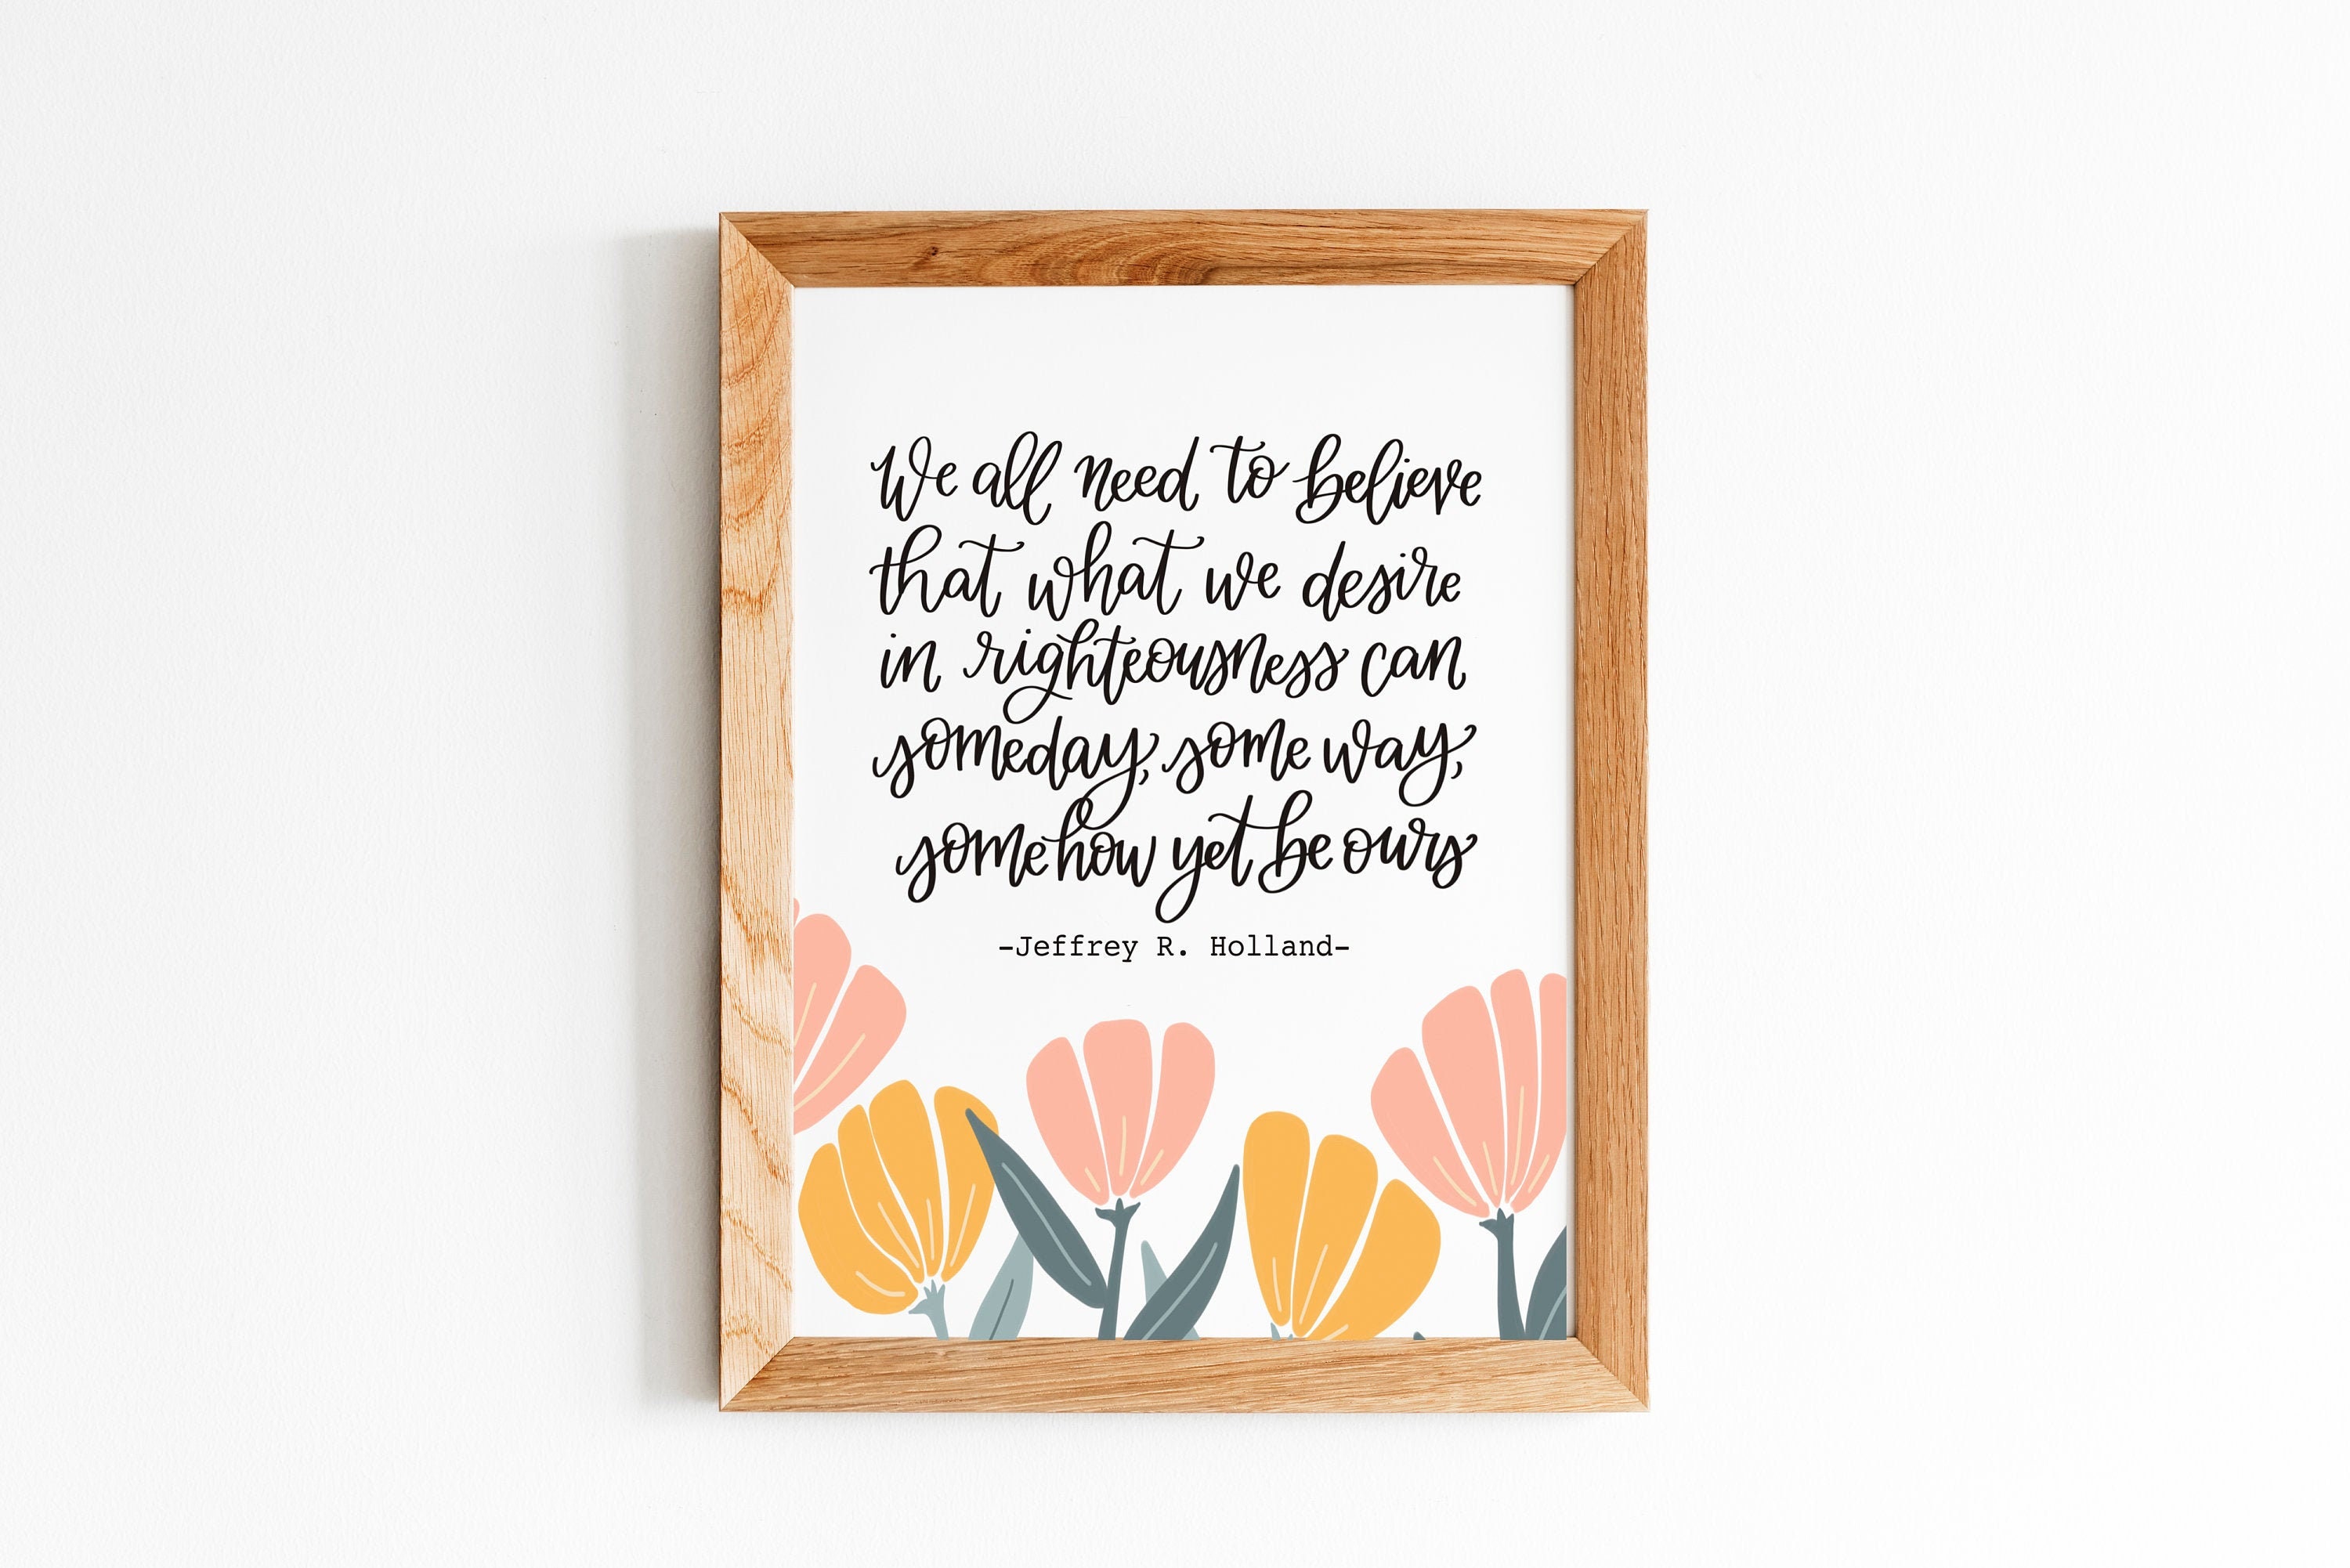 We all need to believe
that what we desire
in righteousness can
someday, some way,
somehow yet be ours
-Jeffrey R. Holland-